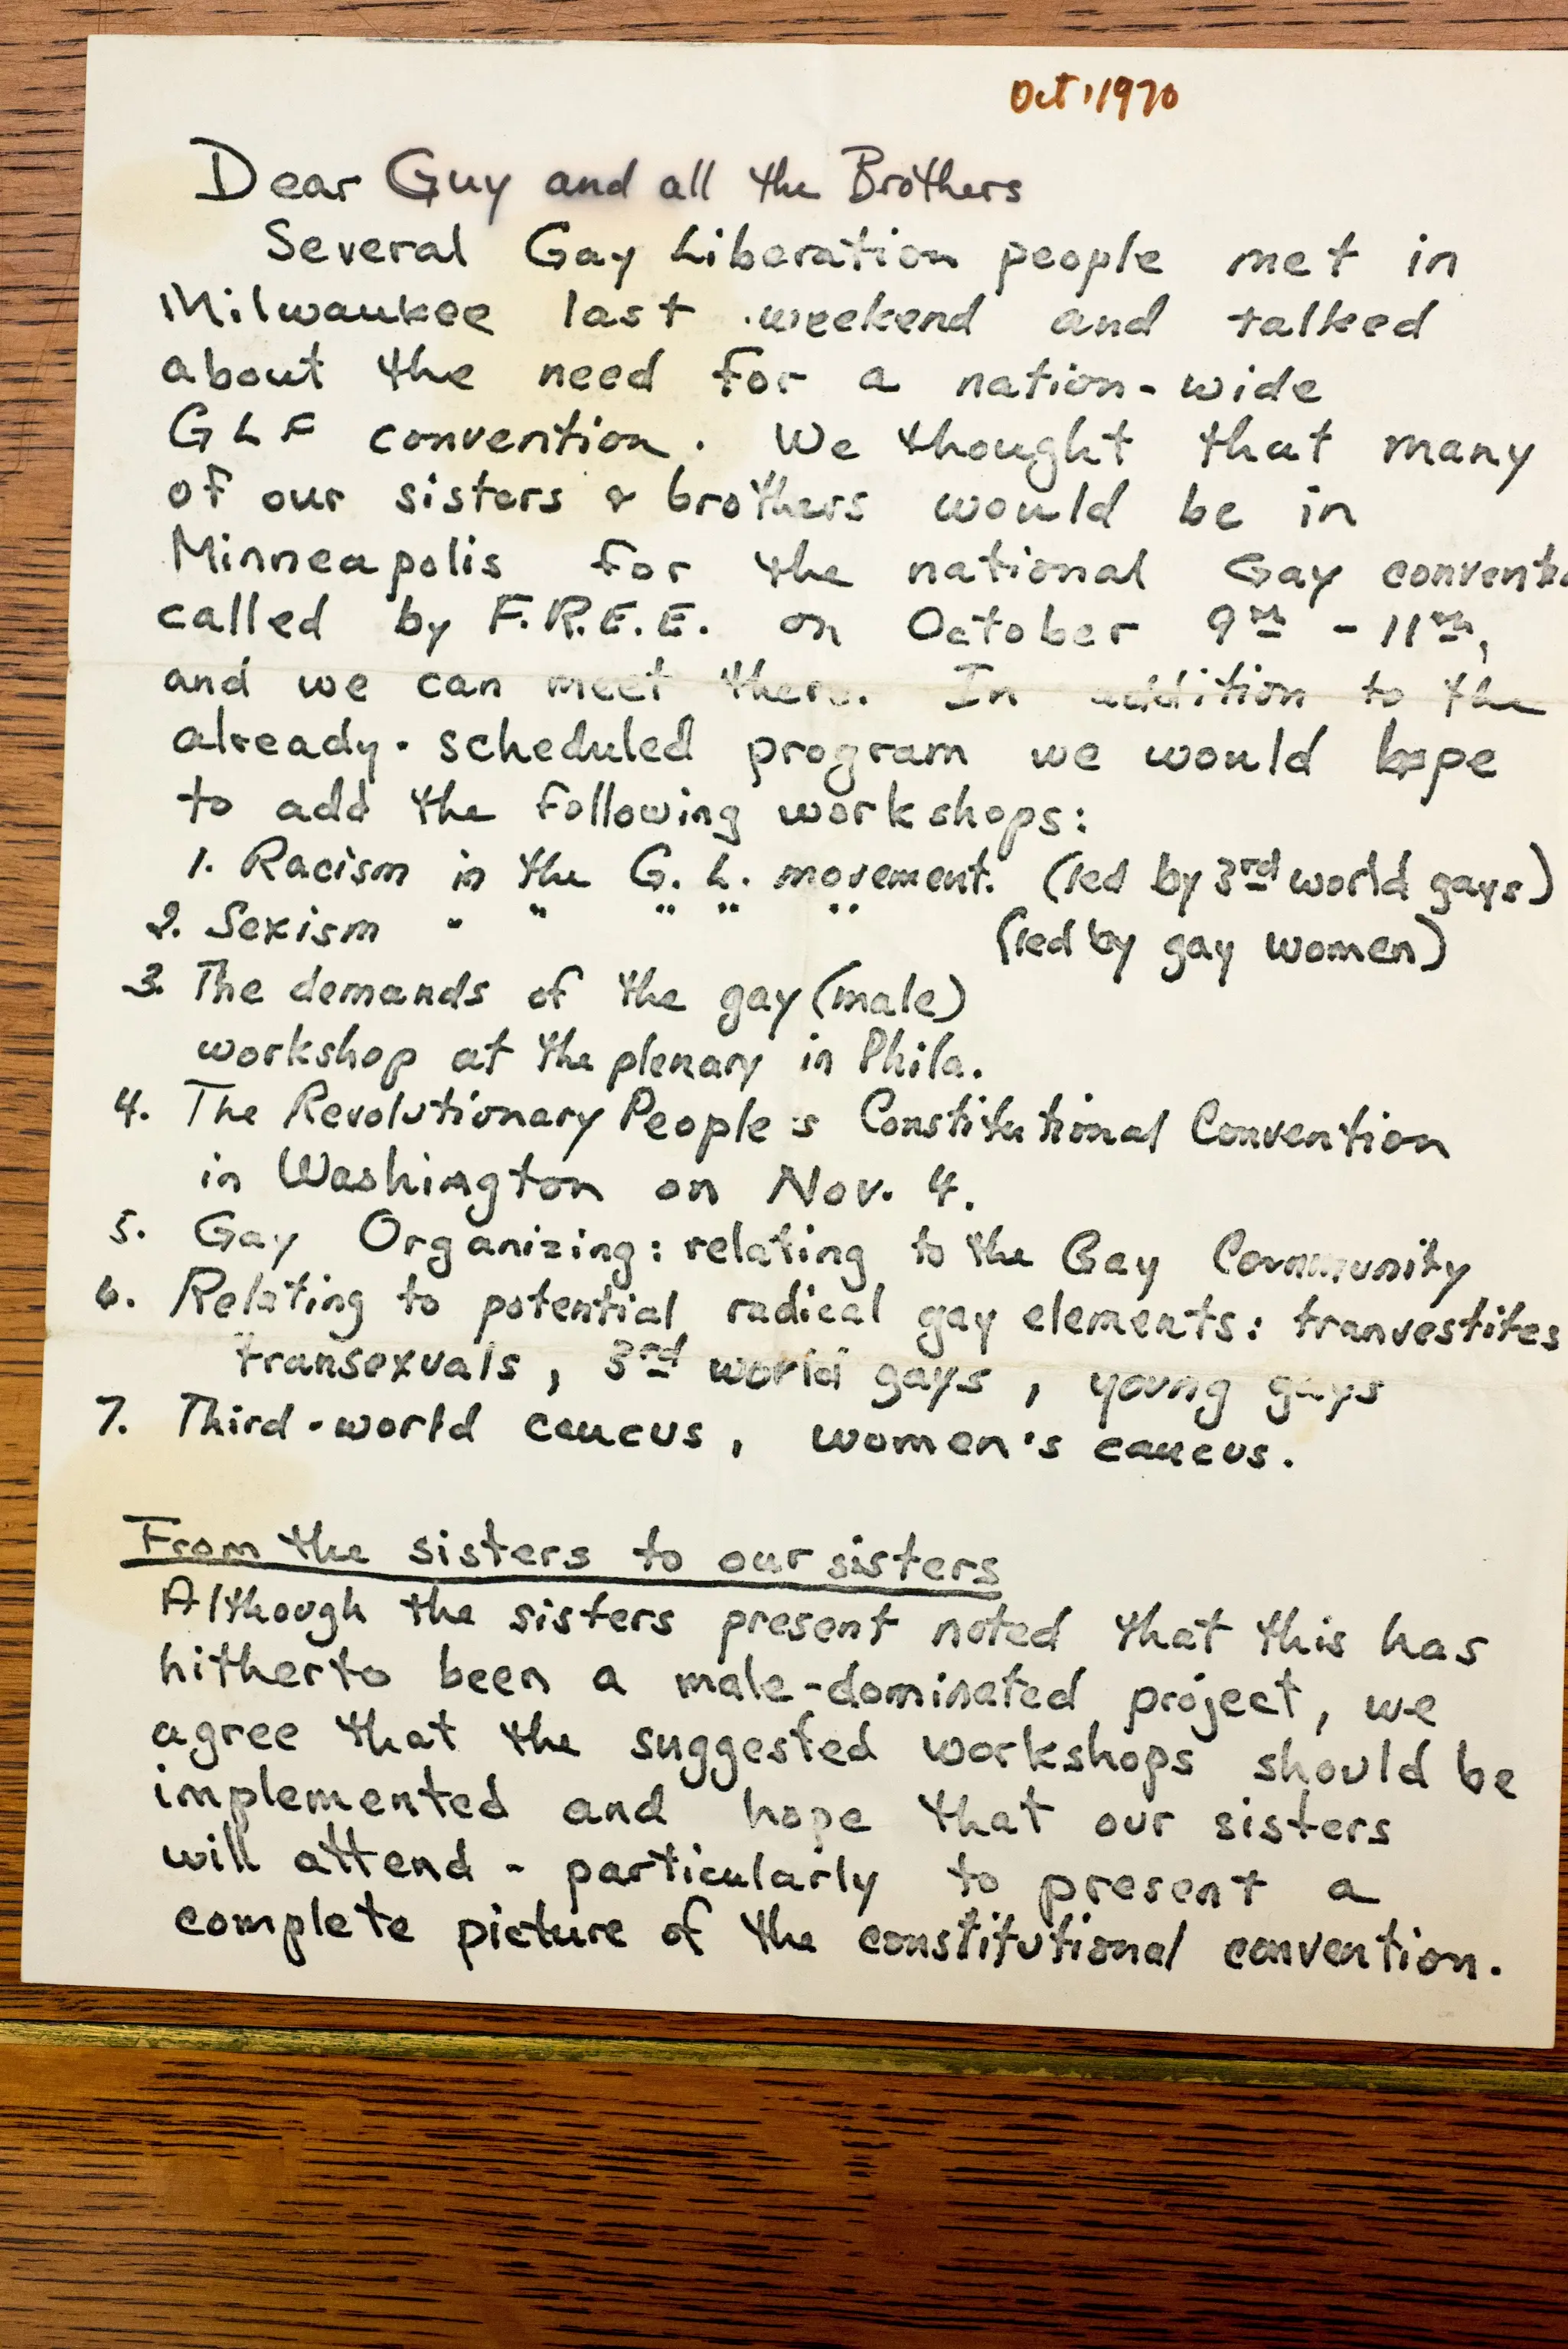 Oct, 1970
Dear Guy and all the Brothers
Several Gay Liberation people met in
Milwaukee last weekend and talked
about the need for a nation-wide
GLF convention. We thought that many
of our sisters & brothers would be in
Minneapolis for the national Gay conventi
called by F.R.E.E. on October 9th - 11th,
and we can meet there. In addition to the
already-scheduled program we would hope
to add the following workshops:
1. Racism in the G. L. movement. (led by 3rd world gays)
2. Sexism " " " " " (led by gay women)
3. The demands of the gay (male)
workshop at the plenary in Phila.
4. The Revolutionary People's Constitutional Convention
in Washington on Nov. 4.
5. Gay Organizing: relating to the Gay Community
6. Relating to potential radical gay elements: tranvestites
transexuals, 3rd world gays, young gays
7. Third-world caucus, women's caucus.
From the sisters to our sisters
Although the sisters present noted that this has
hitherto been a male-dominated project, we
agree that the suggested workshops should be
implemented and hope that our sisters
will attend - particularly to present a
complete picture of the constitutional convention.